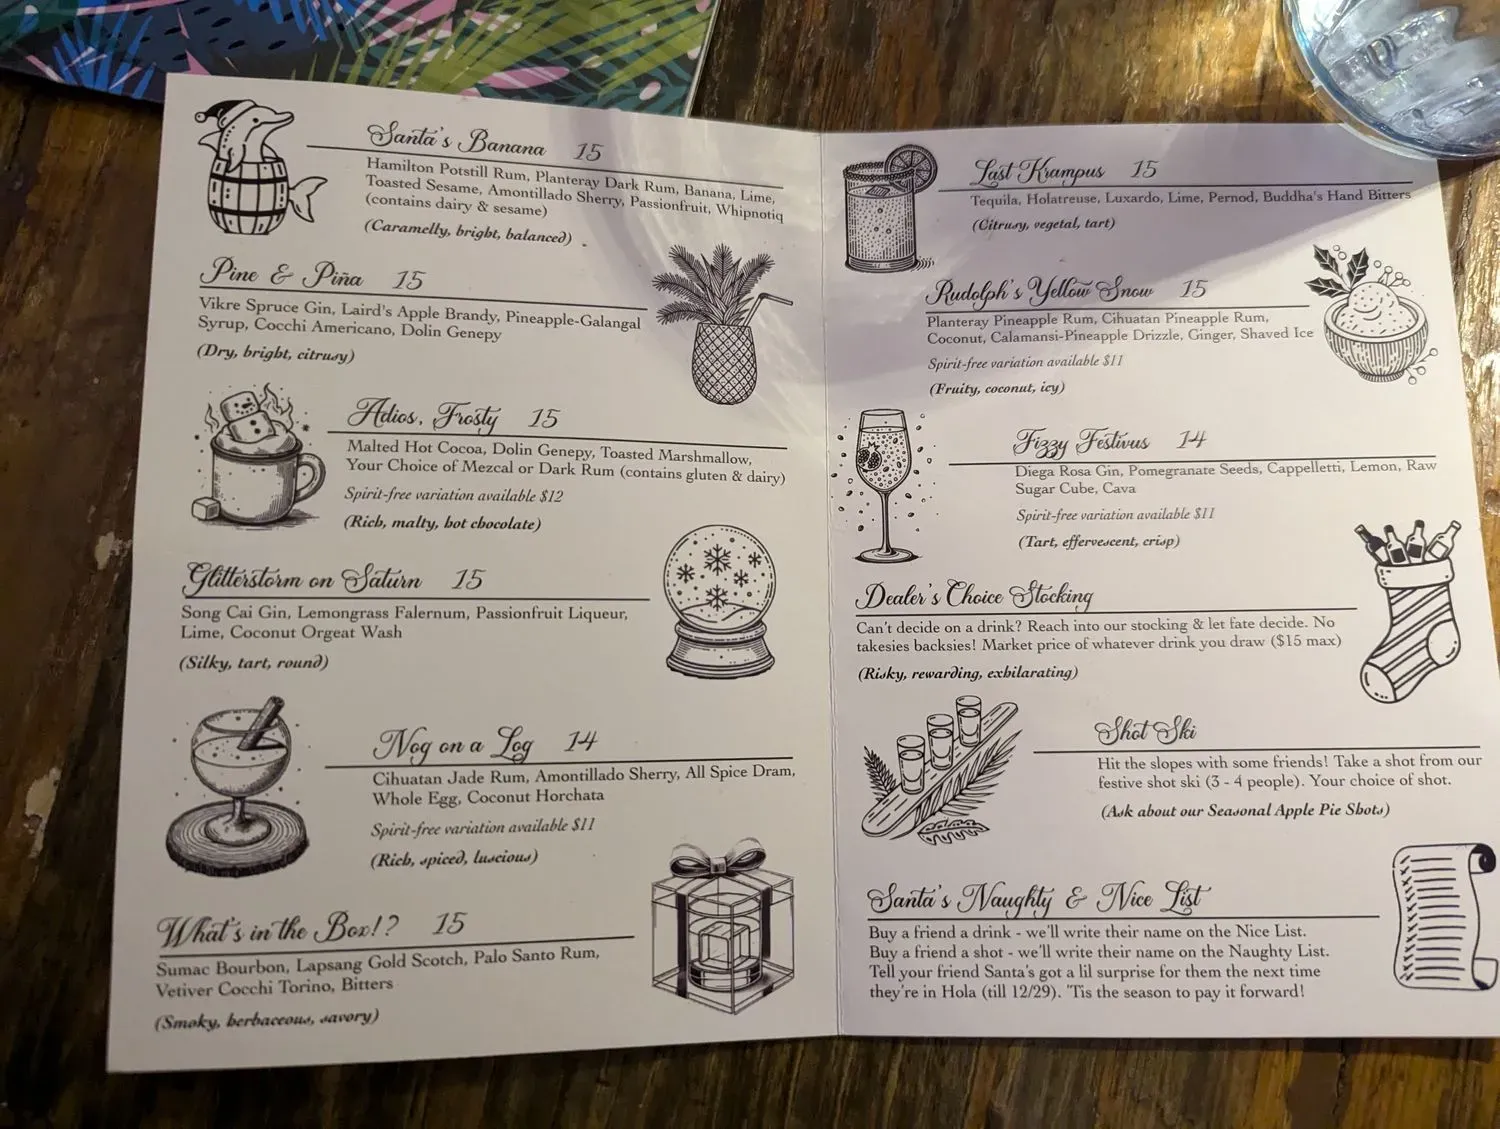 Santa's Banana 15
Hamilton Potstill Rum, Planteray Dark Rum, Banana, Lime,
Toasted Sesame, Amontillado Sherry, Passionfruit, Whipnotiq
(contains dairy & sesame)
(Caramelly, bright, balanced)
Pine & Piña 15
Vikre Spruce Gin, Laird's Apple Brandy, Pineapple-Galangal
Syrup, Cocchi Americano, Dolin Genepy
(Dry, bright, citrusy)
Adios, Frosty 15
Malted Hot Cocoa, Dolin Genepy, Toasted Marshmallow,
Your Choice of Mezcal or Dark Rum (contains gluten & dairy)
Spirit-free variation available $12
(Rich, malty, hot chocolate)
Glitterstorm on Saturn 15
Song Cai Gin, Lemongrass Falernum, Passionfruit Liqueur,
Lime, Coconut Orgeat Wash
(Silky, tart, round)
Nog on a Log 14
Cihuatan Jade Rum, Amontillado Sherry, All Spice Dram,
Whole Egg, Coconut Horchata
Spirit-free variation available $11
(Rich, spiced, luscious)
What's in the Box!? 15
Sumac Bourbon, Lapsang Gold Scotch, Palo Santo Rum,
Vetiver Cocchi Torino, Bitters
(Smoky, herbaceous, savory)
Last Krampus 15
Tequila, Holatreuse, Luxardo, Lime, Pernod, Buddha's Hand Bitters
(Citrusy, vegetal, tart)
Rudolph's Yellow Snow 15
Planteray Pineapple Rum, Cihuatan Pineapple Rum,
Coconut, Calamansi-Pineapple Drizzle, Ginger, Shaved Ice
Spirit-free variation available $11
(Fruity, coconut, icy)
Fizzy Festivus 14
Diega Rosa Gin, Pomegranate Seeds, Cappelletti, Lemon, Raw
Sugar Cube, Cava
Spirit-free variation available $11
(Tart, effervescent, crisp)
Dealer's Choice Stocking
Can't decide on a drink? Reach into our stocking & let fate decide. No
takesies backsies! Market price of whatever drink you draw ($15 max)
(Risky, rewarding, exhilarating)
Shot Ski
Hit the slopes with some friends! Take a shot from our
festive shot ski (3 - 4 people). Your choice of shot.
(Ask about our Seasonal Apple Pie Shots)
Santa's Naughty & Nice List
Buy a friend a drink - we'll write their name on the Nice List.
Buy a friend a shot - we'll write their name on the Naughty List.
Tell your friend Santa's got a lil surprise for them the next time
they're in Hola (till 12/29). 'Tis the season to pay it forward!